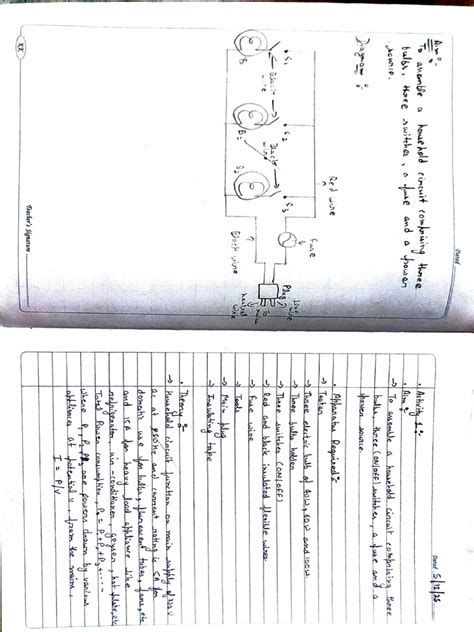 Dated
Aim :-
To assemble a household circuit comprising three
bulbs, three switches, a fuse and a power
source.
Diagram :
S1
S2
S3
B
B2
B3
Black
wire
Black
wire
Red wire
Fuse
Black wire
Plug
Live
wire
To
neutral
wire
Teacher's Signature
Dated 5/12/25
• Activity 1 :-
• Aim :-
→ To assemble a household circuit comprising three
bulbs, three (ON/OFF) switches, a fuse and a
power source
• Apparatus Required :-
→ Three electric bulb of 40W, 60W and 100W
→ Three bulbs holder
→ Three switches (ON/OFF)
→ Red and black insulated flexible wires
→ Fuse wire
→ Tools
→ Main plug
→ Insulating tape
• Theory :-
→ Household circuit function on main supply of 220 V
a.c at 50Hz and current rating is 5A for
domestic use for bulbs, fluorescent tubes, fans, etc
and 15A for heavy load appliance like
refrigerator, air-conditioner, geyser, hot plate, etc
Total Power consumption P = P1 + P2 + P3 + ...
where P1, P2, P3 are powers drawn by various
appliances at potential V, from the mains,
I = P/V